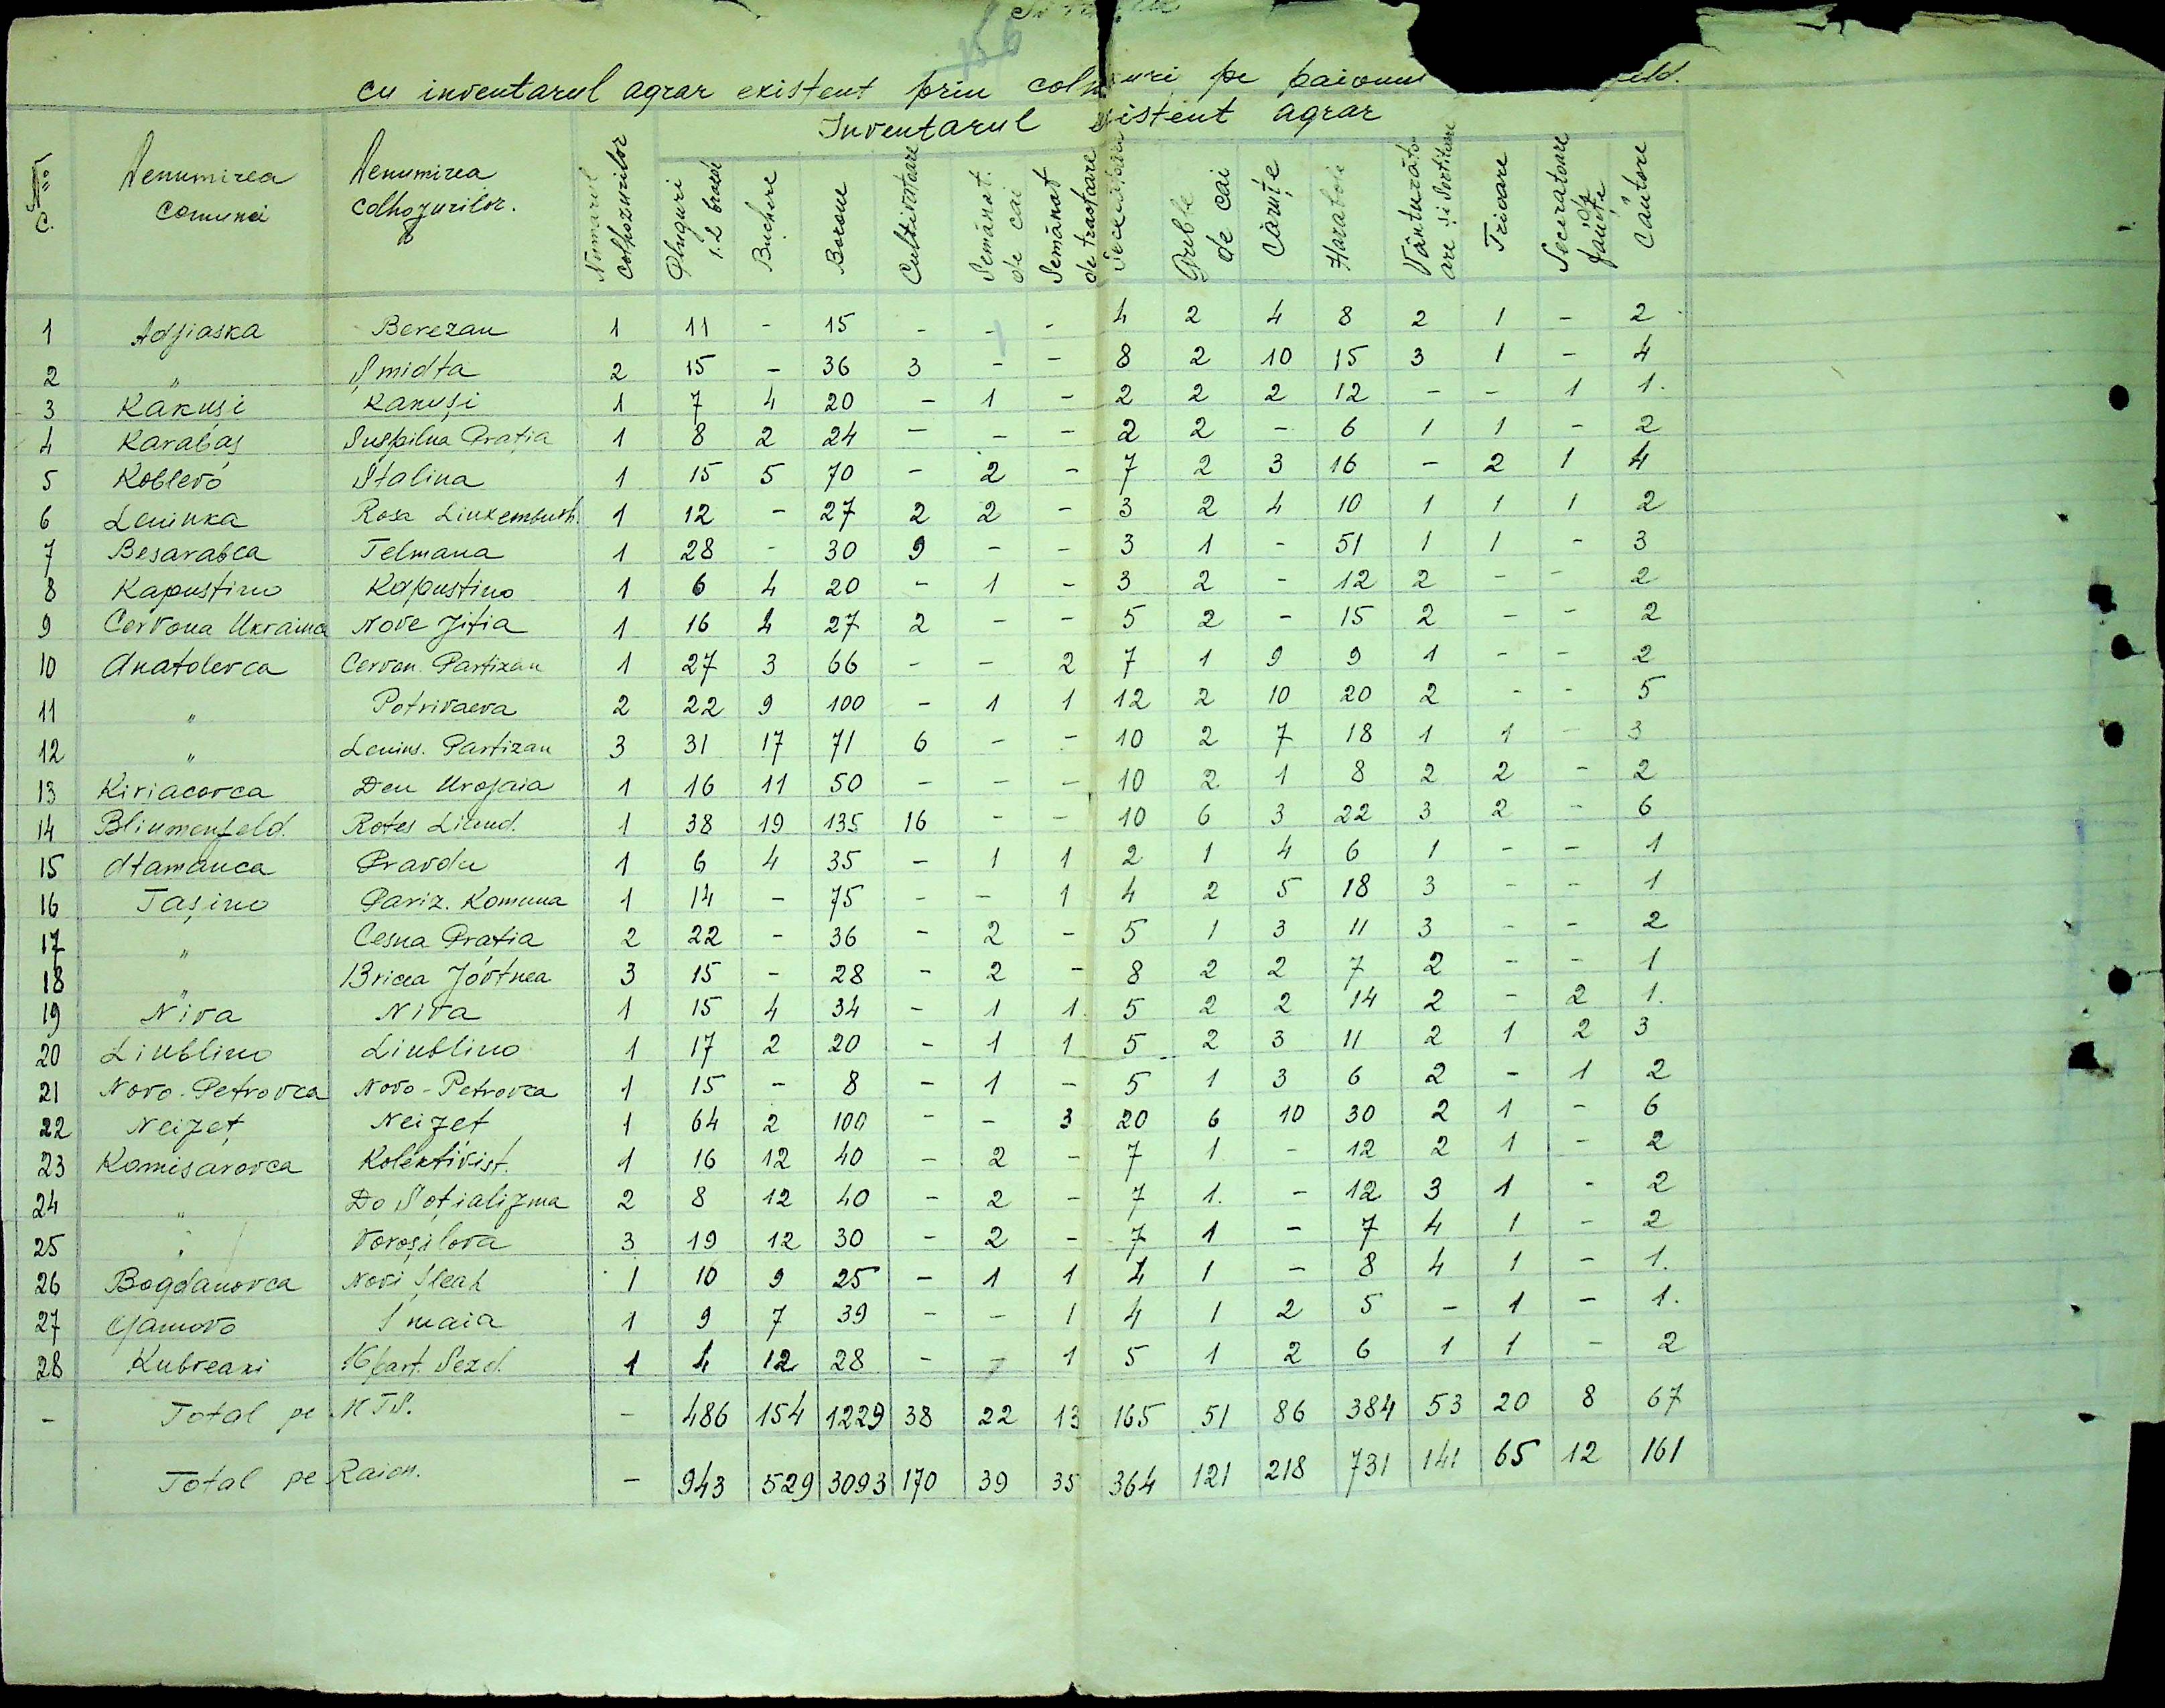 cu inventarul agrar existent prin colh uri pe raionul feld.
Inventarul existent agrar
No. c. Denumirea comunei Denumirea colhozurilor. Numărul colhozurilor Pluguri 1.2 brazde Buchere Boroane Cultivatoare Semănat. de cai Semănat de tractoare Greble de cai Căruțe Harabale Vânturătoare și Sortitoare Trioare Seceratoare de fânețe Cântare
1 Adjiaska Berezan 1 11 - 15 - - - 4 2 4 8 2 1 - 2
2 " Șmidta 2 15 - 36 3 - - 8 2 10 15 3 1 - 4
3 Kakuși Kakuși 1 7 4 20 - 1 - 2 2 2 12 - - 1 1.
4 Karabaș Suspilna Prația 1 8 2 24 - - - 2 2 - 6 1 1 - 2
5 Koblevo Stalina 1 15 5 70 - 2 - 7 2 3 16 - 2 1 4
6 Leninka Rosa Liuxemburh. 1 12 - 27 2 2 - 3 2 4 10 1 1 1 2
7 Besarabca Telmana 1 28 - 30 9 - - 3 1 - 51 1 1 - 3
8 Kapustino Kapustino 1 6 4 20 - 1 - 3 2 - 12 2 - - 2
9 Cervona Ukraina Nove Jitia 1 16 4 27 2 - - 5 2 - 15 2 - - 2
10 Anatolevca Cervon. Partizan 1 27 3 66 - - 2 7 1 9 9 1 - - 2
11 " Potrivaeva 2 22 9 100 - 1 1 12 2 10 20 2 - - 5
12 " Lenins. Partizan 3 31 17 71 6 - - 10 2 7 18 1 1 - 3
13 Kiriacovca Den Urojaia 1 16 11 50 - - - 10 2 1 8 2 2 - 2
14 Bliumenfeld. Rotes Liund. 1 38 19 135 16 - - 10 6 3 22 3 2 - 6
15 Atamanca Pravdu 1 6 4 35 - 1 1 2 1 4 6 1 - - 1
16 Tașino Pariz. Komuna 1 14 - 75 - - 1 4 2 5 18 3 - - 1
17 " Cesna Prația 2 22 - 36 - 2 - 5 1 3 11 3 - - 2
18 " 13 ricea Jovtnea 3 15 - 28 - 2 - 8 2 2 7 2 - - 1
19 Niva Niva 1 15 4 34 - 1 1. 5 2 2 14 2 - 2 1.
20 Liublino Liublino 1 17 2 20 - 1 1 5 2 3 11 2 1 2 3
21 Novo-Petrovca Novo-Petrovca 1 15 - 8 - 1 - 5 1 3 6 2 - 1 2
22 Neizeț Neizeț 1 64 2 100 - - 3 20 6 10 30 2 1 - 6
23 Komisarovca Kolektivist. 1 16 12 40 - 2 - 7 1 - 12 2 1 - 2
24 " Do Soțializma 2 8 12 40 - 2 - 7 1. - 12 3 1 - 2
25 " Voroșilova 3 19 12 30 - 2 - 7 1 - 7 4 1 - 2
26 Bogdanovca Novi Șleah 1 10 9 25 - 1 1 4 1 - 8 4 1 - 1.
27 Gamovo 1 maia 1 9 7 39 - - 1 4 1 2 5 - 1 - 1.
28 Kubreaki 16 part. Sezd. 1 4 12 28 - - 1 5 1 2 6 1 1 - 2
- Total pe M T S. - 486 154 1229 38 22 13 165 51 86 384 53 20 8 67
Total pe Raion. - 943 529 3093 170 39 35 364 121 218 731 141 65 12 161